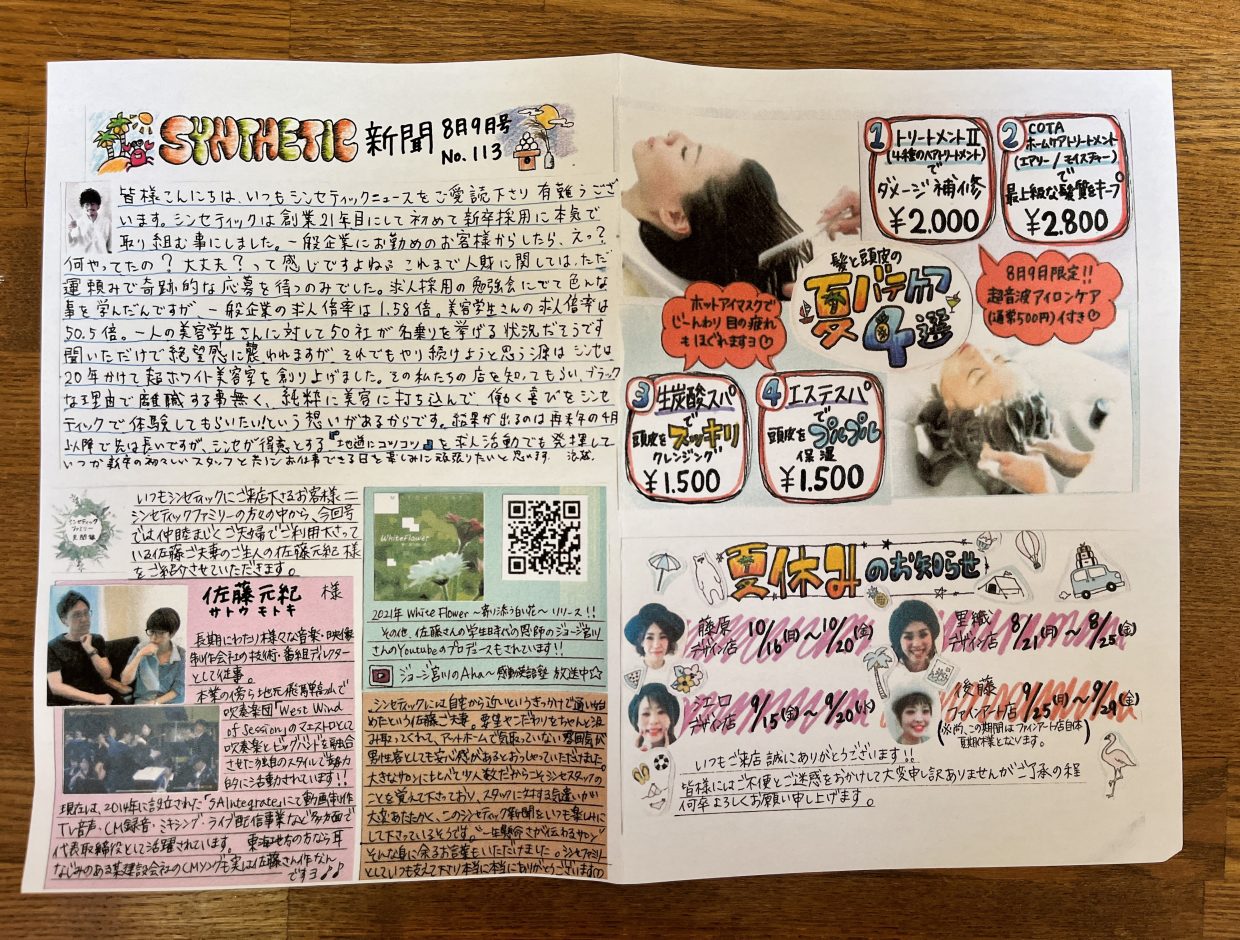 SYNTHETIC 新聞 8月9月号
No.113
皆様こんにちは、いつもシンセティックニュースをご愛読下さり有難うござ
います。シンセティックは創業21年目にして初めて新卒採用に本気で
取り組む事にしました。一般企業にお勤めのお客様からしたら、えっ?
何やってたの?大丈夫?って感じですよね。これまで人財に関しては、ただ
運頼みで奇跡的な応募を待つのみでした。求人採用の勉強会にでて色んな
事を学んだんですが、一般企業の求人倍率は1.58倍。美容学生さんの求人倍率は
50.5倍。一人の美容学生さんに対して50社が名乗りを挙げる状況だそうです
聞いただけで絶望感に襲われますが、それでもやり続けようと思う源はシンセは
20年かけて超ホワイト美容室を創り上げました。その私たちの店を知ってもらい、ブラック
な理由で離職する事無く、純粋に美容に打ち込んで、働く喜びをシンセ
ティックで体験してもらいたい!という想いがあるからです。結果が出るのは再来年の4月
以降で先は長いですが、シンセが得意とする『地道にコツコツ』を求人活動でも発揮して
いつか新卒の初々しいスタッフと共にお仕事できる日を楽しみに頑張りたいと思います
シンセティック
ファミリー
見聞録
いつもシンセティックにご来店下さるお客様=
シンセティックファミリーの方々の中から、今回号
では仲睦まじくご夫婦でご利用下さって
いる佐藤ご夫妻のご主人の佐藤元紀様
をご紹介させていただきます。
佐藤元紀 様
サトウ モトキ
長期にわたり様々な音楽・映像
制作会社の技術・番組ディレクター
として従事。
本業の傍ら地元飛騨
吹奏楽団「West Wind
of Session」のマエストロとして
吹奏楽とビッグバンドを融合
させた独自のスタイルで精力
的に活動されています!!
現在は、2014年に設立された「SAIntegrate」にて動画制作
TV音声・CM録音・ミキシング・ライブ配信事業など多方面で
代表取締役として活躍されています。東海地方の方なら耳
なじみのある某建設会社のCMソングも実は佐藤さん作なん
ですヨ♪♪
WhiteFlower
2021年 White Flower ~寄り添う白い花~ リリース!!
その他、佐藤さんの学生時代の恩師のジョージ宮川
さんのYoutubeのプロデュースもされています!!
ジョージ宮川のAha~感動英語塾 放送中☆
シンセティックには自宅から近いというきっかけで通い始
めたという佐藤ご夫妻。要望やこだわりをちゃんと汲
み取ってくれて、アットホームで気取っていない雰囲気が
男性客としても安心感があるとおっしゃっていただけました。
大きなサロンに比べて少人数だからこそシンセスタッフの
ことを覚えて下さっており、スタッフに対する気遣いが
大変あたたかく、このシンセティック新聞もいつも楽しみに
して下さっているそうです。"一生懸命さが伝わるサロン"
そんな身に余るお言葉もいただけました。シンセファミリー
としていつも支えて下さり本当に本当にありがとうございます
1 トリートメントII
(4種のペアトリートメント)
で
ダメージ補修
¥2.000
2 COTA
ホームケアトリートメント
(エアリー/モイスチャー)
で
最上級な髪質をキープ
¥2.800
髪と頭皮の
夏バテケア
4選
8月9月限定!!
超音波アイロンケア
(通常500円)付き♡
ホットアイマスクで
じーんわり目の疲れ
もほぐれますヨ♡
3 生炭酸スパ
で
頭皮をスッキリ
クレンジング
¥1.500
4 エステスパ
で
頭皮をプルプル
保湿
¥1.500
夏休みのお知らせ
藤原 デザイン店 10/16(月)~10/20(金)
黒織 デザイン店 8/21(月)~8/25(金)
クエロ デザイン店 9/15(金)~9/20(水)
後藤 ファインアート店 9/25(月)~9/29(金)
(※尚、この期間はファインアート店自体
夏期休業となります。)
いつもご来店誠にありがとうございます!!
皆様にはご不便とご迷惑をおかけして大変申し訳ありませんがご了承の程
何卒よろしくお願い申し上げます。